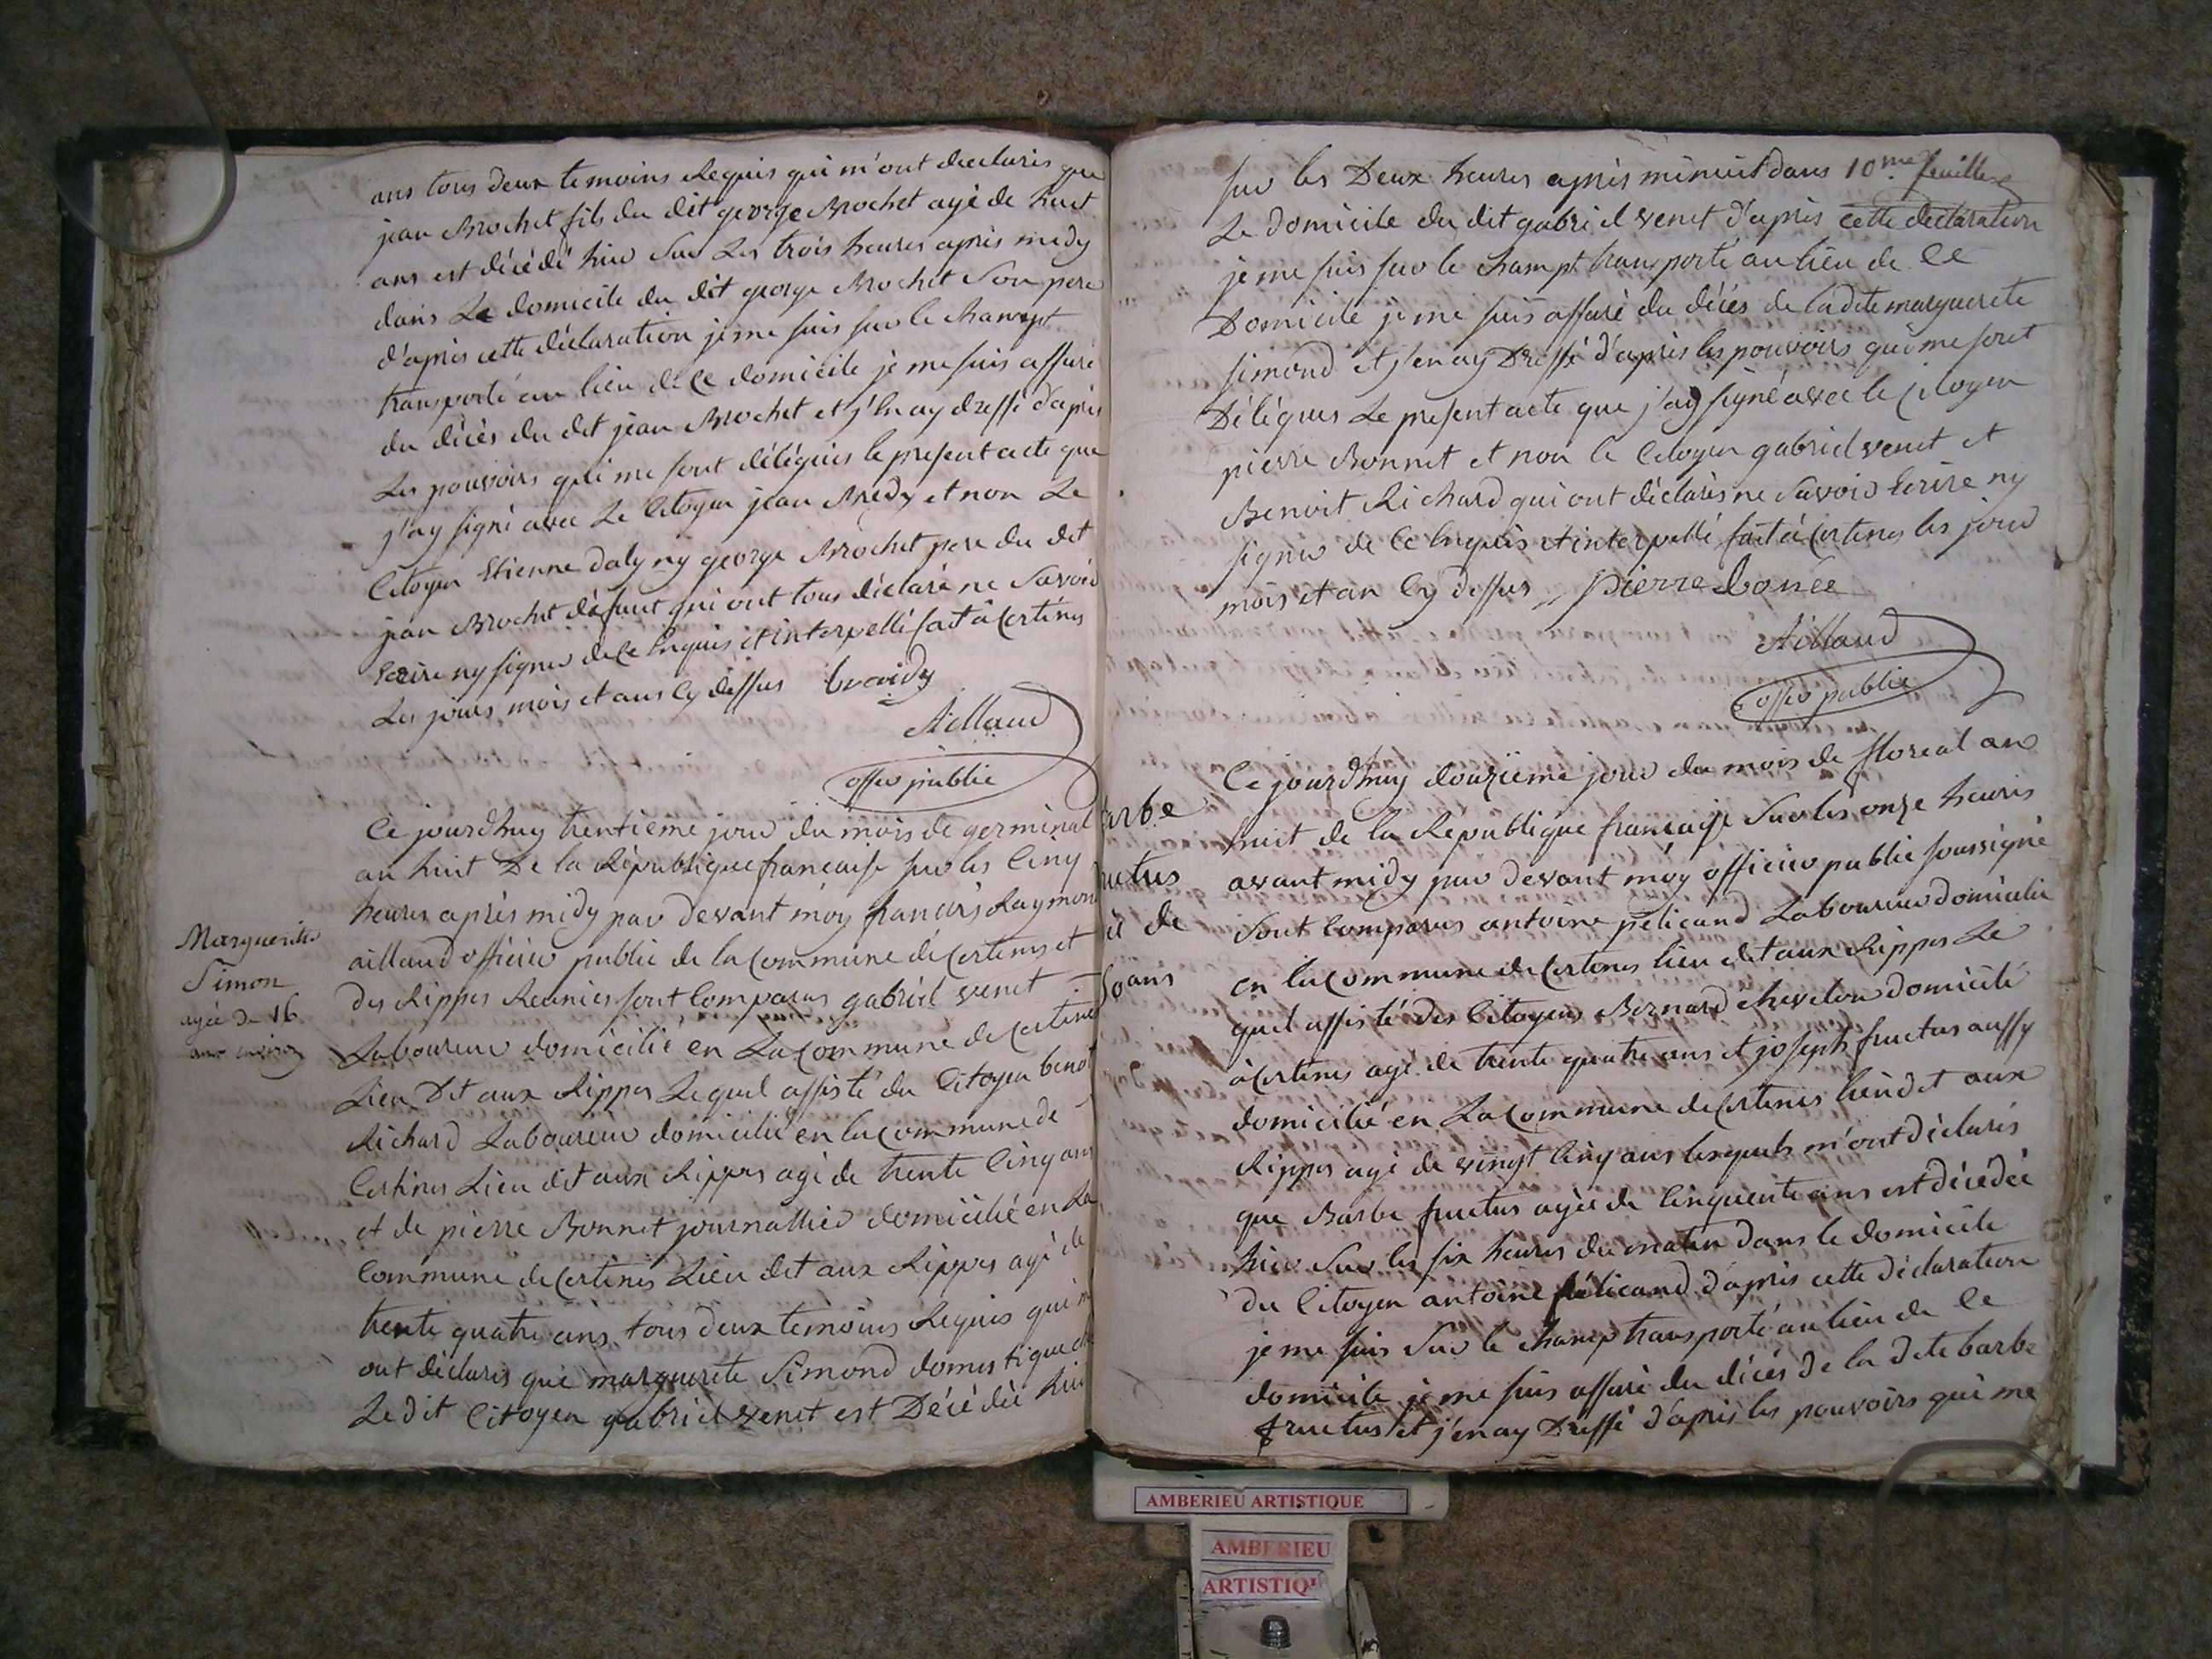 ans tous deux temoins Requis qui m'ont declarés que
jean Brochet fils du dit george Brochet agé de huit
ans est décédé hier Sur Les trois heures après midy
dans Le domicile du dit george Brochet Son pere
d'après cette déclaration je me suis sur le hampt
transporté au lieu de Ce domicile je me suis assuré
du décès du dit jean Brochet et j'en ay dressé d'après
Les pouvoirs qui me sont délégués le present acte que
j'ay signé avec Le Citoyen jean Bredy et non Le
Citoyen Etienne daly ny george Brochet pere du dit
jean Brochet défunt qui ont tous déclaré ne Savoir
Ecrire ny signer de Ce Enquis et interpellé fait à Certines
Les jours mois et ans Cy dessus braidy
Aillaud
offer public
Ce jourdhuy trentieme jour du mois de germinal
an huit De la République française sur les Cinq
heures après midy par devant moy francois Raymond
aillaud officier public de la Commune de Certines et
des Rippes Reunies sont Comparus gabriel venet
Laboureur domicilié en La Commune de Certines
Lieu Dit aux Rippes Lequel assisté du Citoyen benoit
Richard Laboureur domicilié en la Commune de
Certines Lieu dit aux Rippes agé de trente Cinq ans
et de pierre Bonnet journallier domicilié en La
Commune de Certines Lieu dit aux Rippes agé de
trente quatre ans, tous deux temoins Requis qui m
ont déclarés que marguerite Simond domestique de
Le dit Citoyen gabriel venet est Décédée hier
Marguerite
Simon
agée de 16
ans environ
sur les Deux heures après minuit dans 10me feuillet
Le domicile du dit gabriel venet d'après cette déclaration
je me suis sur le champt transporté au lieu de Ce
Domicile je me suis assuré du décès de la dite marguerite
simond et j'en ay Dressé d'après les pouvoirs qui me sont
Délégués Le present acte que j'ay signé avec le Citoyen
pierre Bonnet et non le Citoyen gabriel venet et
Benoit Richard qui ont déclarés ne Savoir Ecrire ny
signer de Ce Enquis et interpellé fait à Certines les jour
mois et an Cy dessus pierre bonée
Aillaud
offer public
arbe
uctus
ée de
50 ans
Ce jourdhuy douzieme jour du mois de floreal an
huit de la Republique française Sur les onze heures
avant midy par devant moy officier public soussigné
Sont Comparus antoine pélicand Laboureur domicilié
en la Commune de Certines lieu dit aux Rippes Le
quel assisté des Citoyens Bernard chevelon domicilié
à Certines agé de trente quatre ans et joseph fructus aussy
domicilié en La Commune de Certines lieu dit aux
Rippes agé de vingt Cinq ans lesquels m'ont déclarés
que Barbe fructus agée de Cinquente ans est décédée
hier Sur les six heures du matin Dans le domicile
du Citoyen antoine pélicand d'après cette déclaration
je me suis Sur le champ transporté au lieu de Ce
domicile je me suis assuré du décés de la dite barbe
fructus et j'en ay Dressé d'après les pouvoirs qui me
AMBERIEU ARTISTIQUE
AMBERIEU
ARTISTIQU